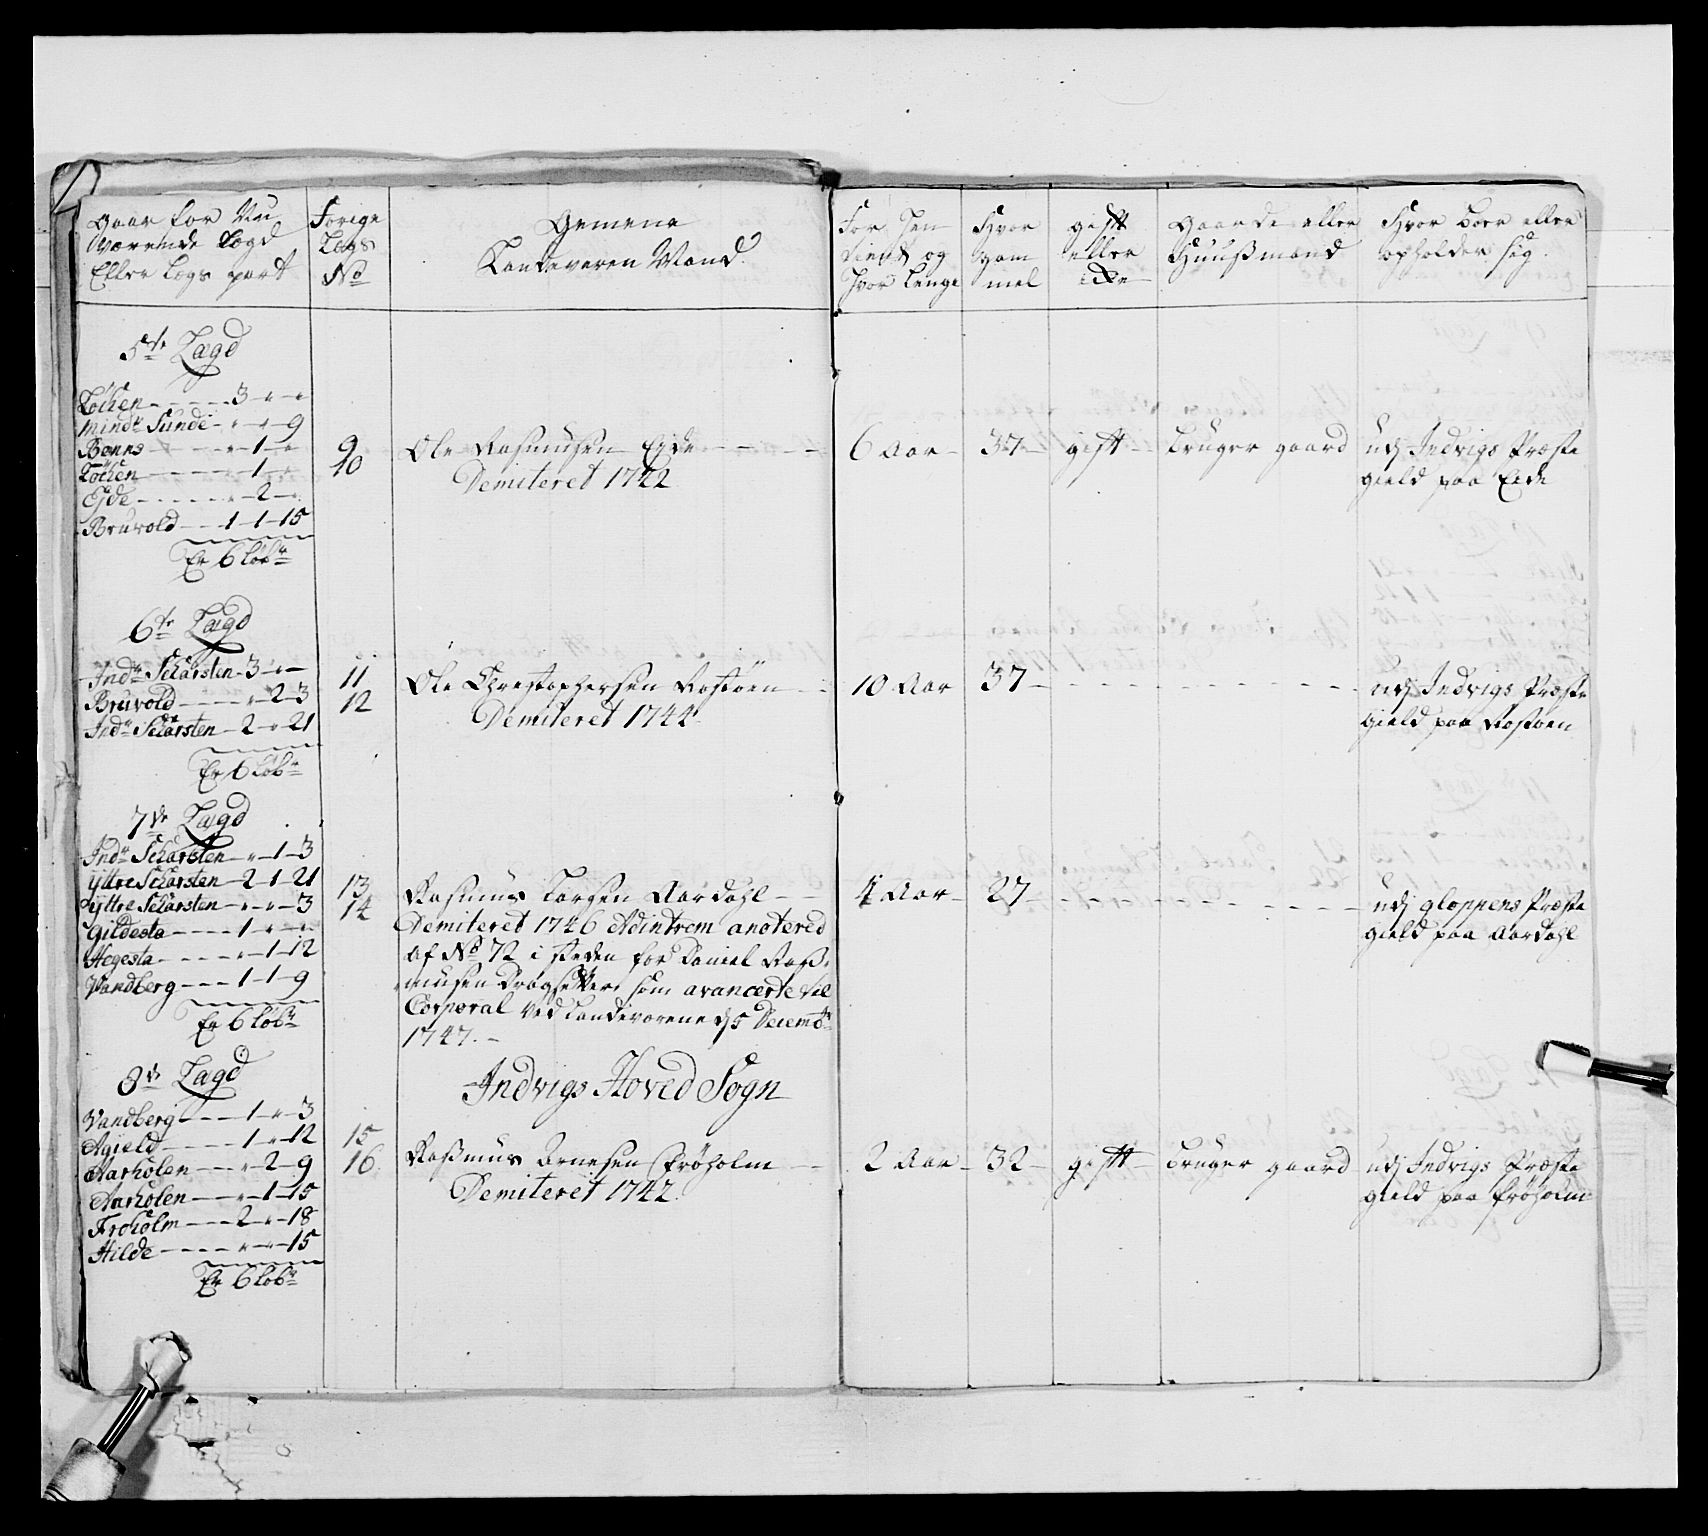 Gaar for Nu
værende Lægd
Eller Legs part
Forige
Legs
No
Gemene
Landeværen Mand
For Jen
Tient og
Hvor Lenge
Hvor
gam
mel
gift
eller
Ikke
Gaarde eller
Huusmand
Hvor boer eller
opholder sig
5te Lægd
Löchen 3 " "
Mindr Sunde " " 9
Bønns " 1 "
Löchen " 1 "
Ejde " 2 "
Bruvold 1 1 15
Er 6 Løbr
9
10
Ole Rasmusen Ejde
Demiteret 1742
6 Aar
37
gift
bruger gaard
udj Indvigs Præste
gield paa Eide
6te Lægd
Indr Scharsten 3 " "
Bruvold " 2 3
Indr Scharsten 2 " 21
Er 6 Løbr
11
12
Ole Christophersen Rostøen
Demiteret 1744
10 Aar
37
udj Indvigs Præste
gield paa Rostøen
7de Lægd
Indr Scharsten " 1 3
Yttre Scharsten 2 1 21
Yttre Scharsten " " 3
Gildesta 1 " "
Hegesta " 1 12
Vandberg 1 1 9
Er 6 Løbr
13
14
Rasmus Larsen Aardahl
Demiteret 1746 Adintrem anotered
af No 72 i steden for Daniel Ras-
musen Drogsetter som avancerte til
Corporal ved Landeværene d 5 Decembr
1747.
4 Aar
27
udj gloppens Præste
gield paa Aardahl
Indvigs Hoved Sogn
8de Lægd
Vandberg 1 " 3
Agield 1 " 12
Aarholen " 2 9
Aarholen " 1 15
Froholm 2 " 18
Hilde " " 15
Er 6 Løbr
15
16
Rasmus Arnesen Frøholm
Demiteret 1742
2 Aar
32
gift
bruger gaard
udj Indvigs Præste
gield paa Frøholm